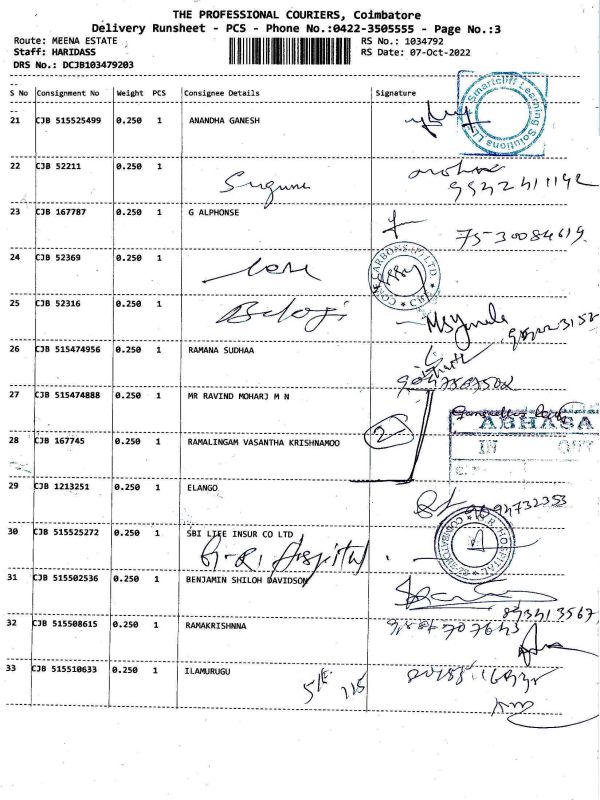 THE PROFESSIONAL COURIERS, Coimbatore
Delivery Runsheet - PCS - Phone No.:0422-3505555 - Page No.:3
Route: MEENA ESTATE
RS No.: 1034792
Staff: HARIDASS
RS Date: 07-Oct-2022
DRS No.: DCJB103479203
S No Consignment No Weight PCS Consignee Details Signature
21 CJB 515525499 0.250 1 ANANDHA GANESH
Smartcliff Learning Solutions LLP
22 CJB 52211 0.250 1 Suguna
23 CJB 167787 0.250 1 G ALPHONSE
75-30084619
24 CJB 52369 0.250 1
CARBONS (P) LTD
CBE
25 CJB 52316 0.250 1 Beloji
26 CJB 515474956 0.250 1 RAMANA SUDHAA
27 CJB 515474888 0.250 1 MR RAVIND MOHARJ M N
ABHASA
IN OUT
28 CJB 167745 0.250 1 RAMALINGAM VASANTHA KRISHNAMOO
2
29 CJB 1213251 0.250 1 ELANGO
9094732353
30 CJB 515525272 0.250 1 SBI LIFE INSUR CO LTD
G.R. Hospital
HOSPITAL
31 CJB 515502536 0.250 1 BENJAMIN SHILOH DAVIDSON
32 CJB 515508615 0.250 1 RAMAKRISHNNA
33 CJB 515510633 0.250 1 ILAMURUGU